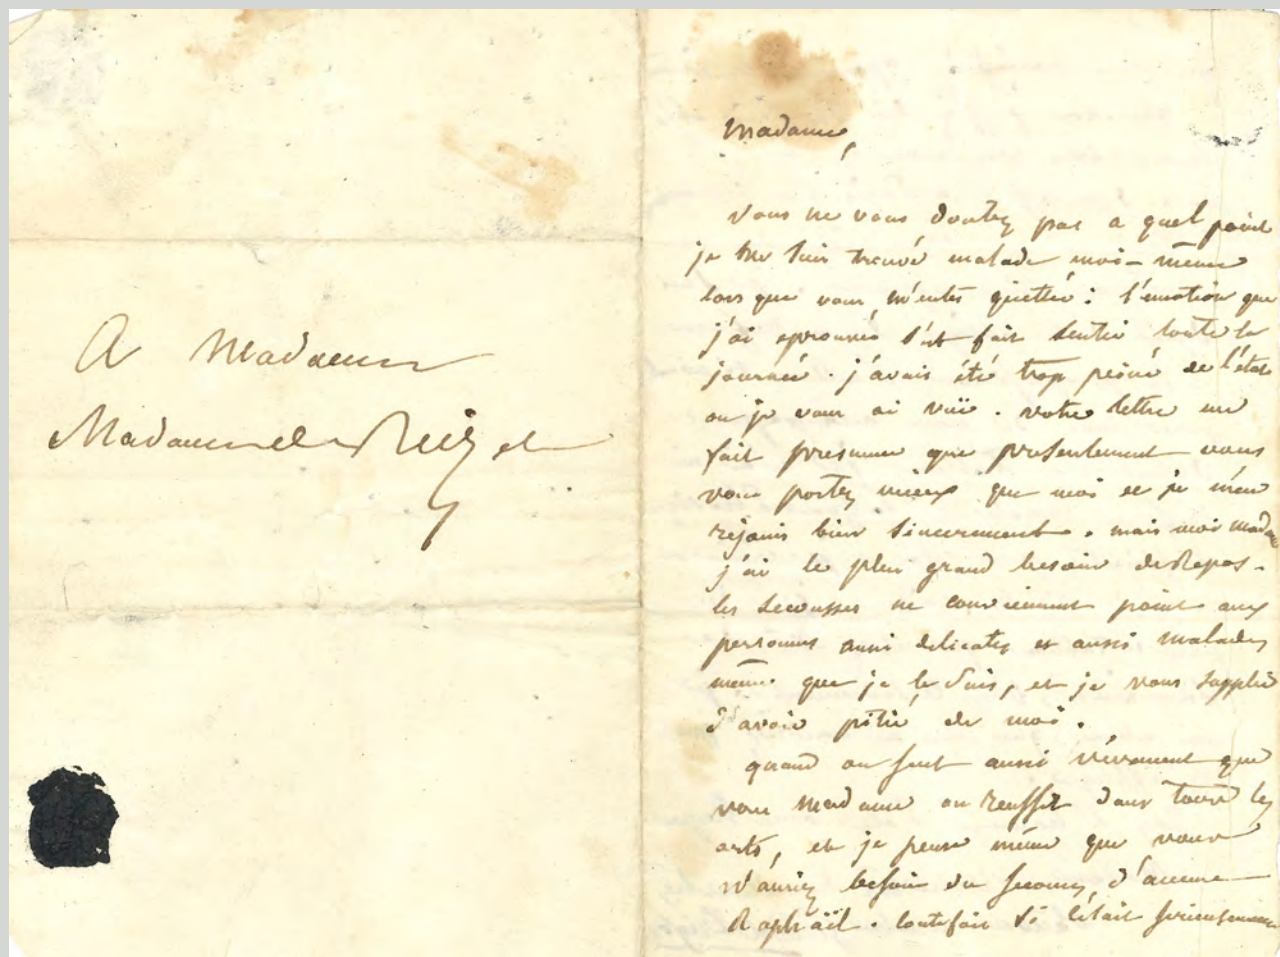 A Madame
Madame de
Madame,
vous ne vous doutez pas a quel point
je me suis trouvé malade moi-même
lors que vous m'eutes quittée : l'emotion que
j'ai eprouvée s'est fait sentir toute la
journée. j'avais été trop peiné de l'état
ou je vous ai vüe. votre lettre me
fait presumer que presentement vous
vous portez mieux que moi et je m'en
rejouis bien sincerement. mais moi madame
j'ai le plus grand besoin de Repos.
les secousses ne conviennent point aux
personnes aussi delicates et aussi malades
même que je le suis, et je vous supplie
d'avoir pitié de moi.
quand on sent aussi vivement que
vous madame on reussit dans tous les
arts, et je pense même que vous
n'auriez besoin du secours d'aucun
Raphaël. toutefois si c'était serieusement